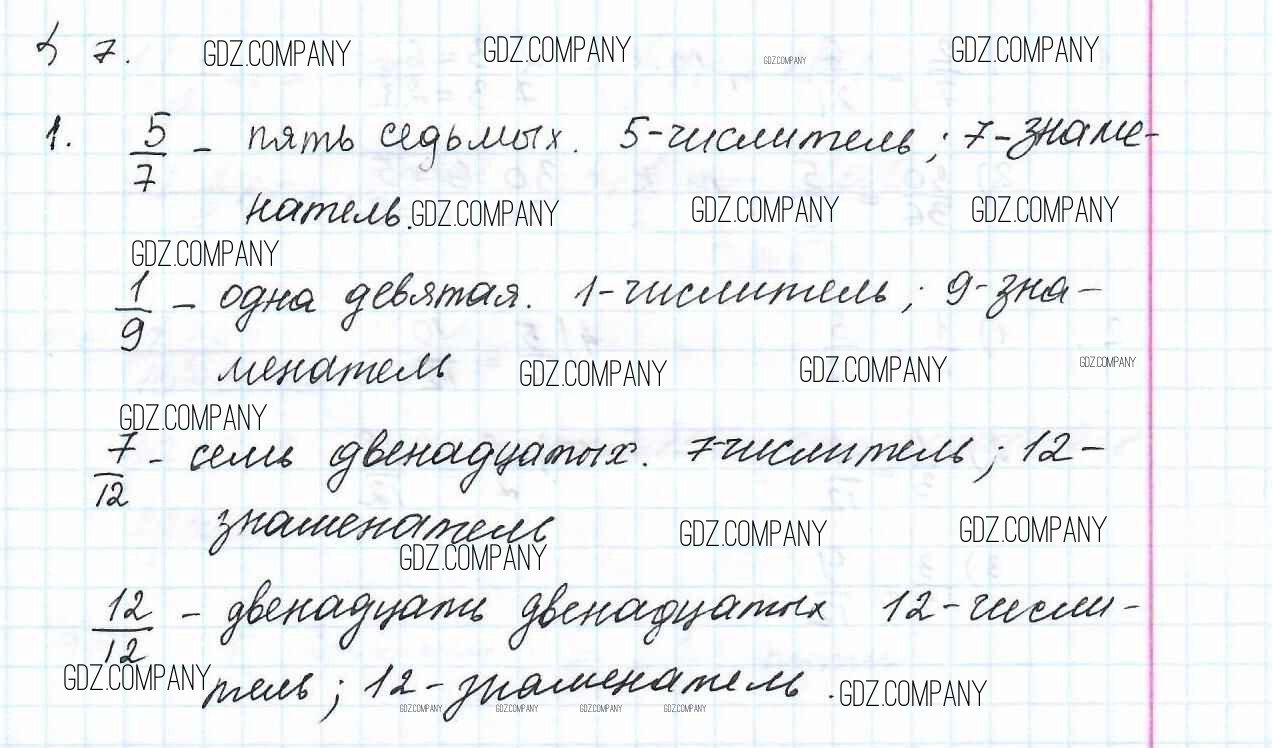 § 7. GDZ.COMPANY GDZ.COMPANY GDZ.COMPANY GDZ.COMPANY
1. 5/7 - пять седьмых. 5-числитель; 7-знаме-
натель. GDZ.COMPANY GDZ.COMPANY GDZ.COMPANY
GDZ.COMPANY
1/9 - одна девятая. 1-числитель; 9-зна-
менатель GDZ.COMPANY GDZ.COMPANY GDZ.COMPANY
GDZ.COMPANY
7/12 - семь двенадцатых. 7-числитель; 12-
знаменатель GDZ.COMPANY GDZ.COMPANY
GDZ.COMPANY
12/12 - двенадцать двенадцатых 12-числи-
GDZ.COMPANY тель; 12-знаменатель. GDZ.COMPANY
GDZ.COMPANY GDZ.COMPANY GDZ.COMPANY GDZ.COMPANY